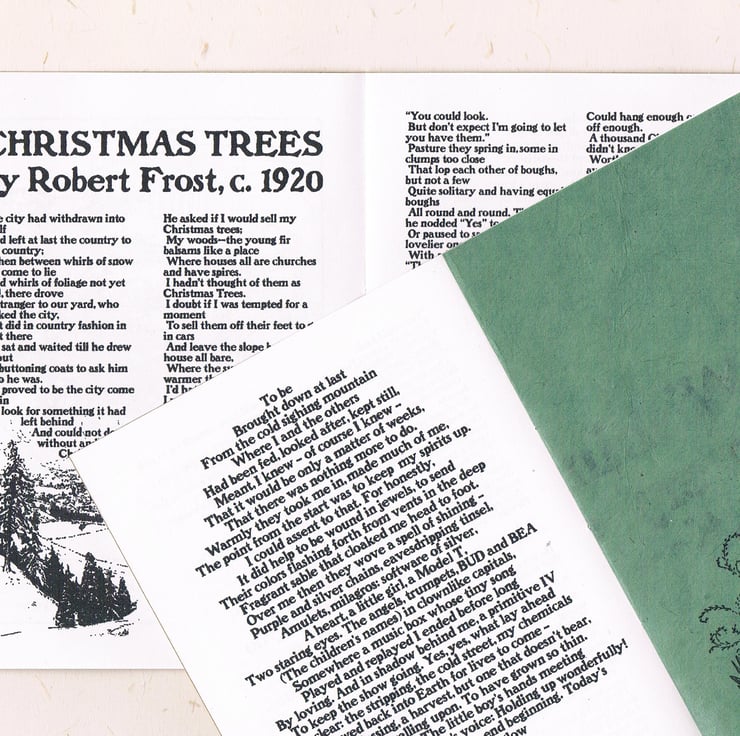 CHRISTMAS TREES
Robert Frost, c. 1920
city had withdrawn into
left at last the country to
country;
between whirls of snow
come to lie
whirls of foliage not yet
there drove
to our yard, who
the city,
did in country fashion in
there
sat and waited till he drew
buttoning coats to ask him
he was.
proved to be the city come
in
look for something it had
left behind
And could not do
without
He asked if I would sell my
Christmas trees;
My woods—the young fir
balsams like a place
Where houses all are churches
and have spires.
I hadn't thought of them as
Christmas Trees.
I doubt if I was tempted for a
moment
To sell them off their feet to
in cars
And leave the slope
house all bare,
Where the
warmer
I'd
"You could look.
But don't expect I'm going to let
you have them."
Pasture they spring in, some in
clumps too close
That lop each other of boughs,
but not a few
Quite solitary and having equal
boughs
All round and round.
he nodded "Yes" to
Or paused to
lovelier
With
Could hang enough
off enough.
A thousand
didn't
To be
Brought down at last
From the cold sighing mountain
Where I and the others
Had been fed, looked after, kept still,
Meant, I knew – of course I knew –
That it would be only a matter of weeks,
That there was nothing more to do.
Warmly they took me in, made much of me,
The point from the start was to keep my spirits up.
I could assent to that. For honestly,
It did help to be wound in jewels, to send
Their colors flashing forth from vents in the deep
Fragrant sable that cloaked me head to foot.
Over me then they wove a spell of shining –
Purple and silver chains, eavesdripping tinsel,
Amulets, milagros: software of silver,
A heart, a little girl, a Model T,
Two staring eyes. The angels, trumpets, BUD and BEA
(The children's names) in clownlike capitals,
Somewhere a music box whose tiny song
Played and replayed I ended before long
By loving. And in shadow behind me, a primitive IV
To keep the show going. Yes, yes, what lay ahead
clear: the stripping, the cold street, my chemicals
back into Earth for lives to come –
a harvest, but one that doesn't bear,
upon. To have grown so thin.
The little boy's hands meeting
voice: Holding up wonderfully!
end beginning. Today's